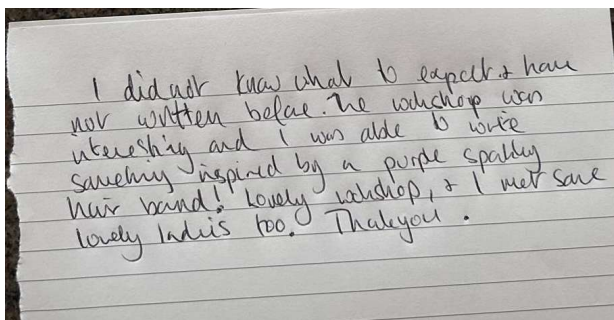 I did not know what to expect & have
not written before. The workshop was
interesting and I was able to write
something inspired by a purple sparkly
hair band! Lovely workshop, & I met some
lovely ladies too. Thankyou.